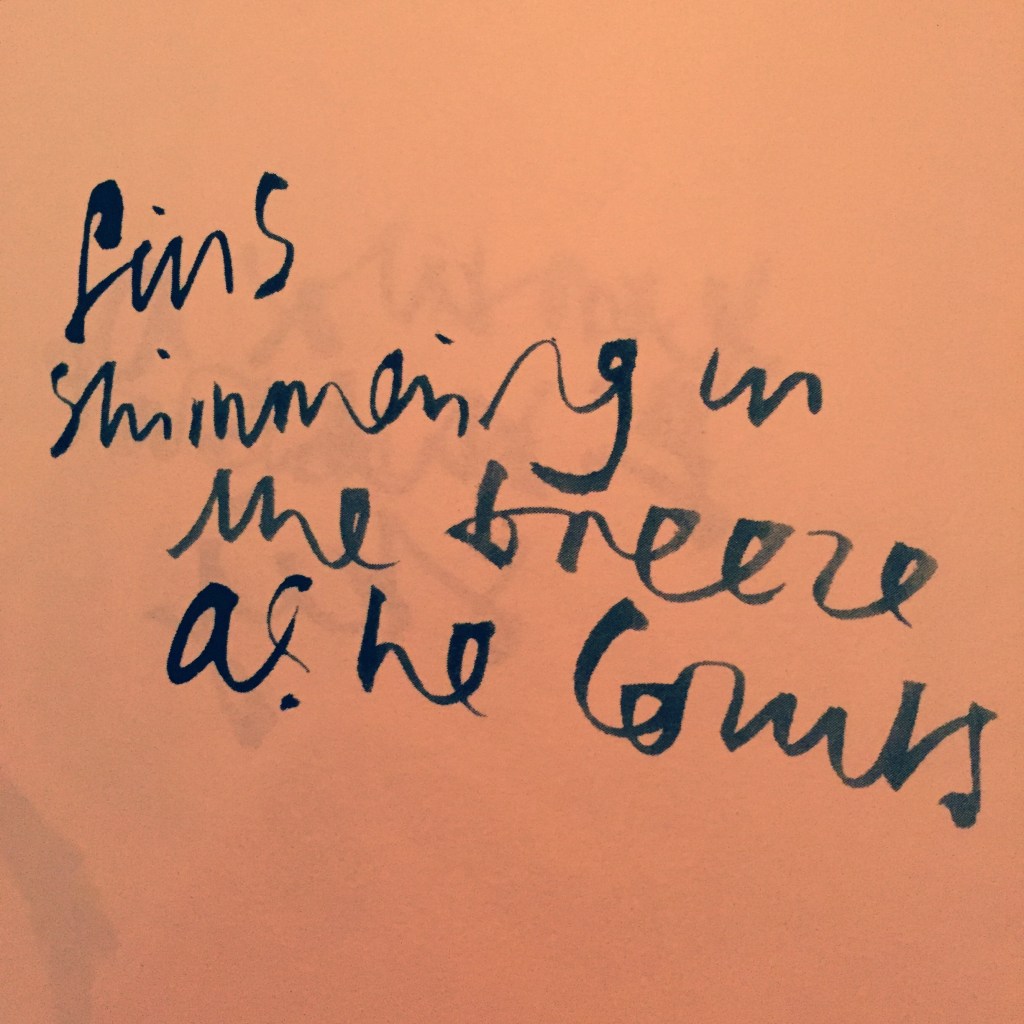 fins
shimmering in
the breeze
as he comes